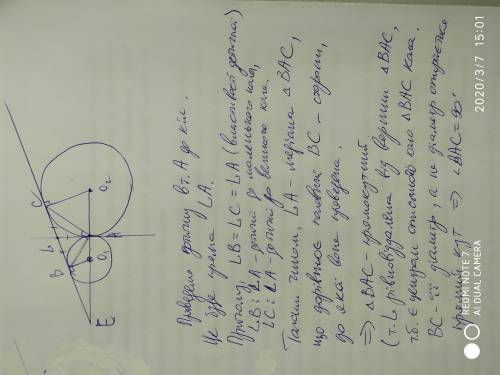 Проведемо дотичну в т. А до кіл.
Це буде пряма LA.
Причому, LB = LC = LA (властивості дотичної)
LB і LA - дотичні до маленького кола,
LC і LA - дотичні до великого кола.
Таким чином, LA - медіана △BAC,
що дорівнює половині BC - сторони,
до якої вона проведена.
⇒ △BAC - прямокутний
(т. L рівновіддалена від вершин △BAC,
т.б. є центром описаного кола △BAC кола.
BC - її діаметр, а на діаметр опирається
прямий кут ⇒ ∠BAC = 90°
E
B
L
C
O₁
A
O₂
REDMI NOTE 7
AI DUAL CAMERA
2020/3/7 15:01